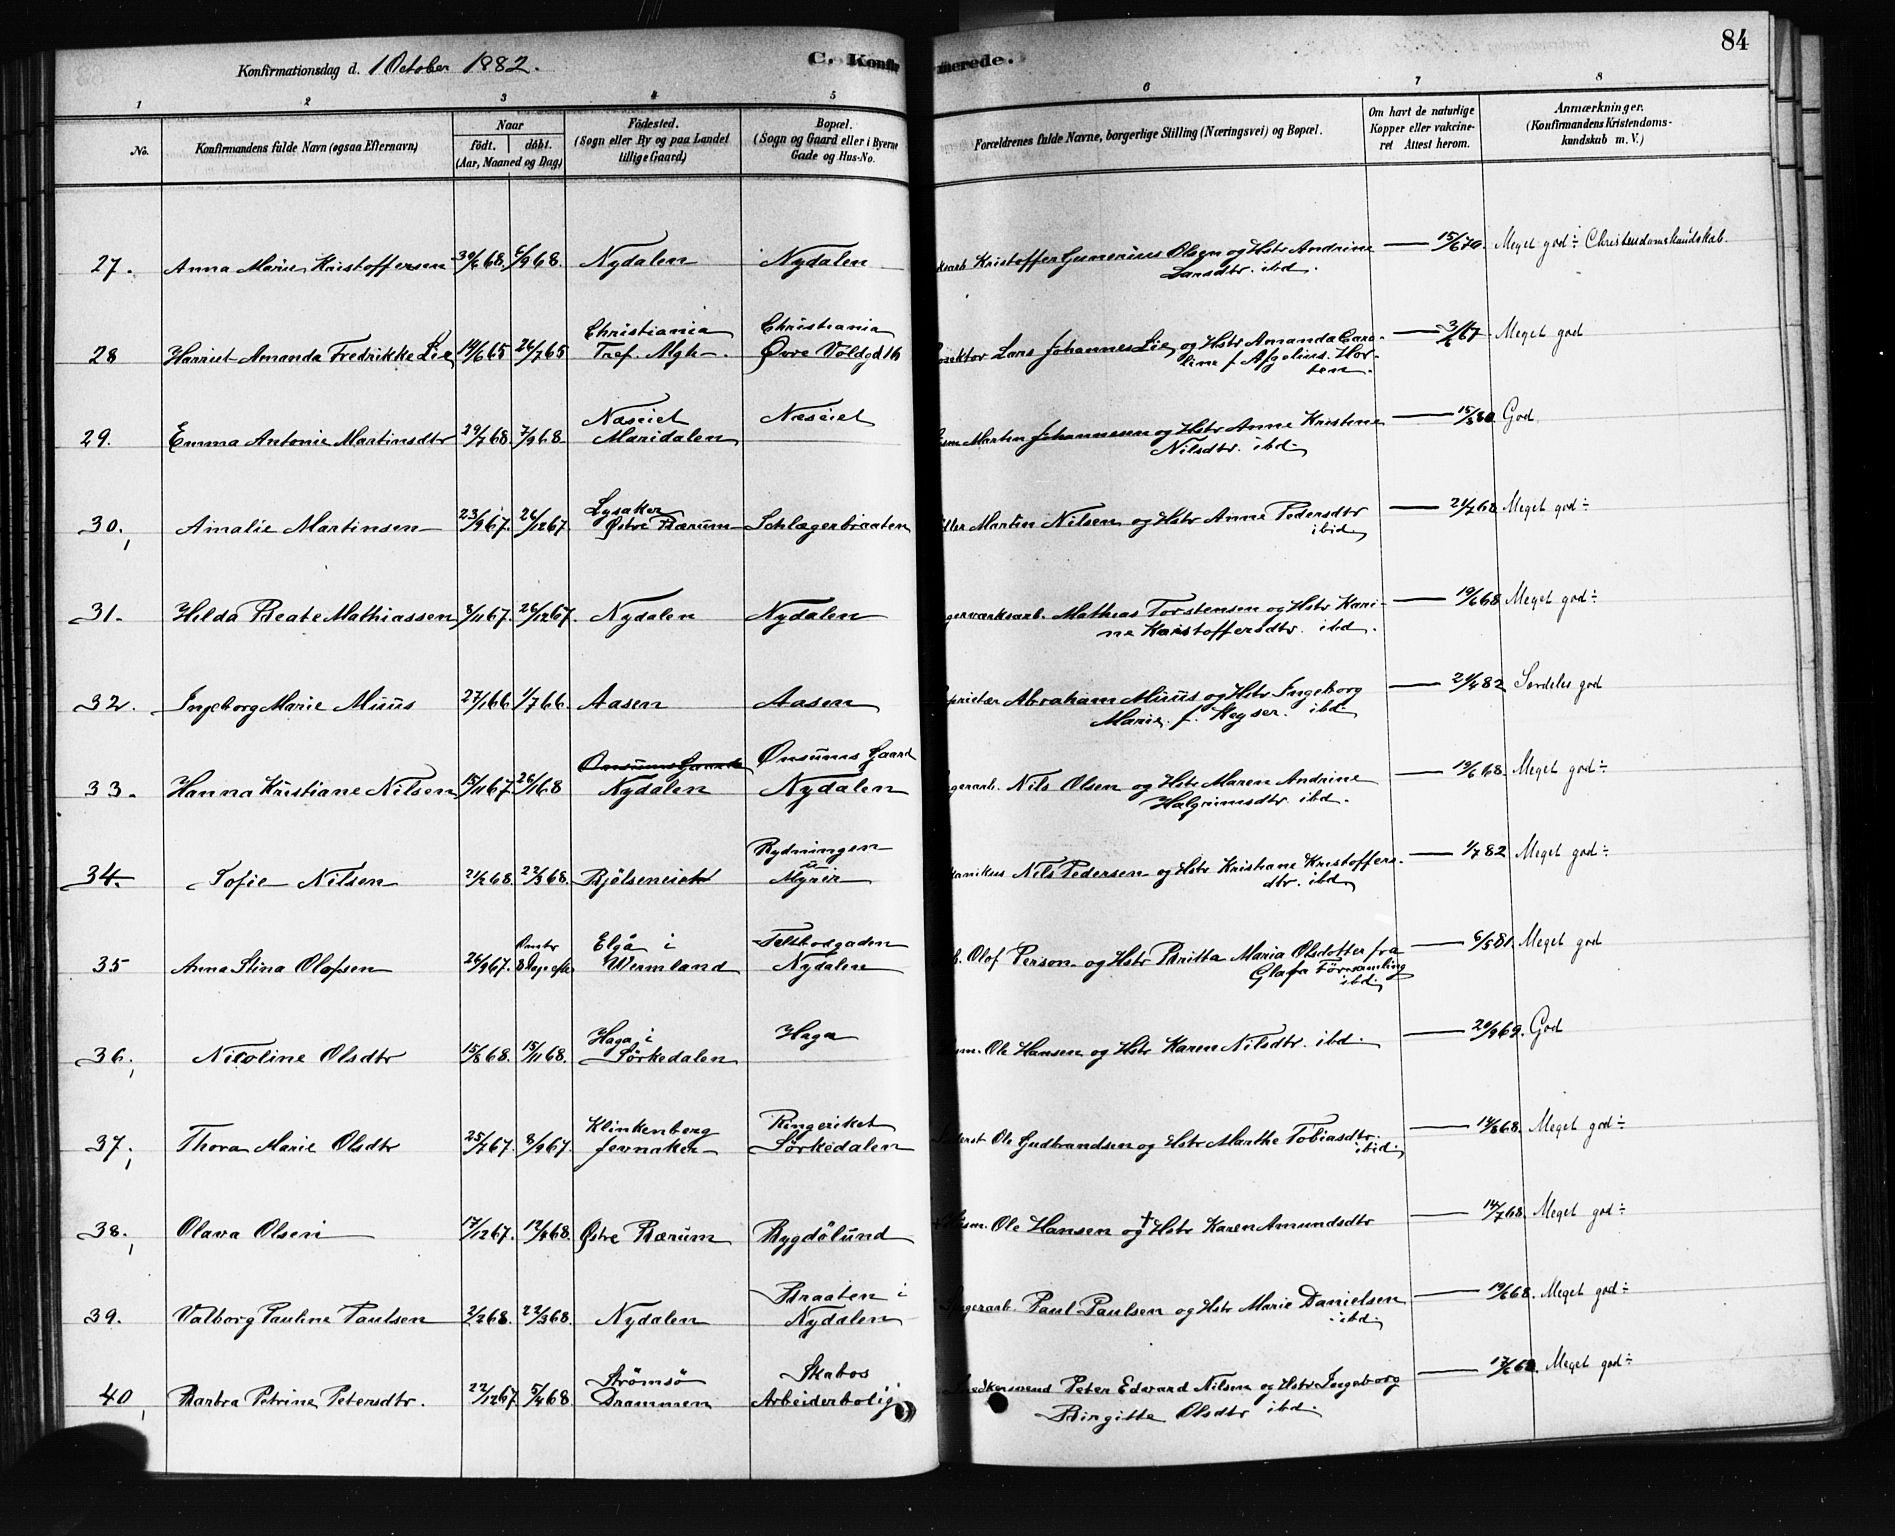 84
Konfirmationsdag d. 1 October 1882.
C. Konfir merede.
1 2 3 4 5 6 7 8
No.
Konfirmandens fulde Navn (ogsaa Efternavn)
Naar
födt. döbt.
(Aar, Maaned og Dag)
Födested.
(Sogn eller By og paa Landet
tillige Gaard)
Bopæl.
(Sogn og Gaard eller i Byerne
Gade og Hus-No.
Forældrenes fulde Navne, borgerlige Stilling (Næringsvei) og Bopæl.
Om havt de naturlige
Kopper eller vakcine-
ret Attest herom.
Anmærkninger.
(Konfirmandens Kristendoms-
kundskab m. V.)
27. Anna Marie Kristoffersen 30/6 68. 6/9 68. Nydalen Nydalen Kristoffer Gunerius Olsen og Hstr Andrine — 15/6 70. Meget god ÷ Christendomskundskab.
Larsdtr. ibd.
Christiania Christiania
28 Harriet Amanda Fredrikke Lie 14/6 65 26/7 65 Øvre Voldgd 16 Lars Johannes Lie og Hstr Amanda Caro- — 67 Meget god
line f. Afzelius. Hor-
ten.
Næseiet Næseiet
29. Emma Antonie Martinsdtr 29/7 68. 7/9 68. Maridalen Martin Johannesen og Hstr Anne Kristine — 80. God
Nilsdtr. ibd.
Lysaker
30. Amalie Martinsen 23/9 67. 26/12 67 Østre Bærum Schlægerbraaten Martin Nilsen og Hstr Anne Pedersdtr — 21/7 68 Meget god ÷
ibid.
31. Hilda Beate Mathiassen 8/11 67. 26/12 67. Nydalen Nydalen gerværksarb. Mathias Torstensen og Hstr Kari- — 19/6 68 Meget god ÷
ne Kristoffersdtr. ibd.
32. Ingeborg Marie Muus 27/1 66 1/7 66. Aasen Aasen prietær Abraham Muus og Hstr Ingeborg — 82. Særdeles god
Marie f. Keyser. ibd.
Önsums Gaard Önsums Gaard
33. Hanna Kristiane Nilsen 15/11 67. 26/1 68 Nydalen Nydalen gerarb. Nils Olsen og Hstr Maren Andrine — 19/6 68. Meget god ÷
Halgrimsdtr. ibd.
Rydningen
34. Sofie Nilsen 21/2 68. 22/3 68. Bjölseneiet Myrer kanikus Nils Pedersen og Hstr Kristiane Kristoffers- — 1/7 82 Meget god ÷
dtr. ibd.
Elgå i Teltborgaden
35 Anna Stina Olofsen 26/9 67. Wermland Nydalen Olof Person og Hstr Britta Maria Olsdotter fra — 6/5 81. Meget god
Glafa Församling
ibd.
Haga i Haga
36. Nicoline Olsdtr 15/8 68. 15/11 68. Sörkedalen Ole Hansen og Hstr Karen Nilsdtr. ibd. — 20/9 69. God
Klinkenberg Ringeriket
37. Thora Marie Olsdtr 25/7 67. 8/9 67. Jevnaker Sörkedalen Ole Gudbrandsen og Hstr Marthe Tobiasdtr. — 14/8 68. Meget god ÷
ibid.
38. Olava Olsen 17/12 67. Østre Bærum Bygdölund Ole Hansen og † Hstr Karen Amundsdtr — 14/7 68. Meget god ÷
Braaten i
39. Valborg Pauline Paulsen 2/2 68. 22/3 68. Nydalen Nydalen Spigerarb. Paul Paulsen og Hstr Marie Danielsen — 19/6 68. Meget god ÷
ibd.
Strömsö Skabos
40 Barbra Petrine Petersdtr. 22/12 67 5/4 68. Drammen Arbeiderbolig Snedkersvend Peter Edvard Nilsen og Hstr Ingeborg — 17/6 68. Meget god ÷
Birgitte Olsdtr ibd.